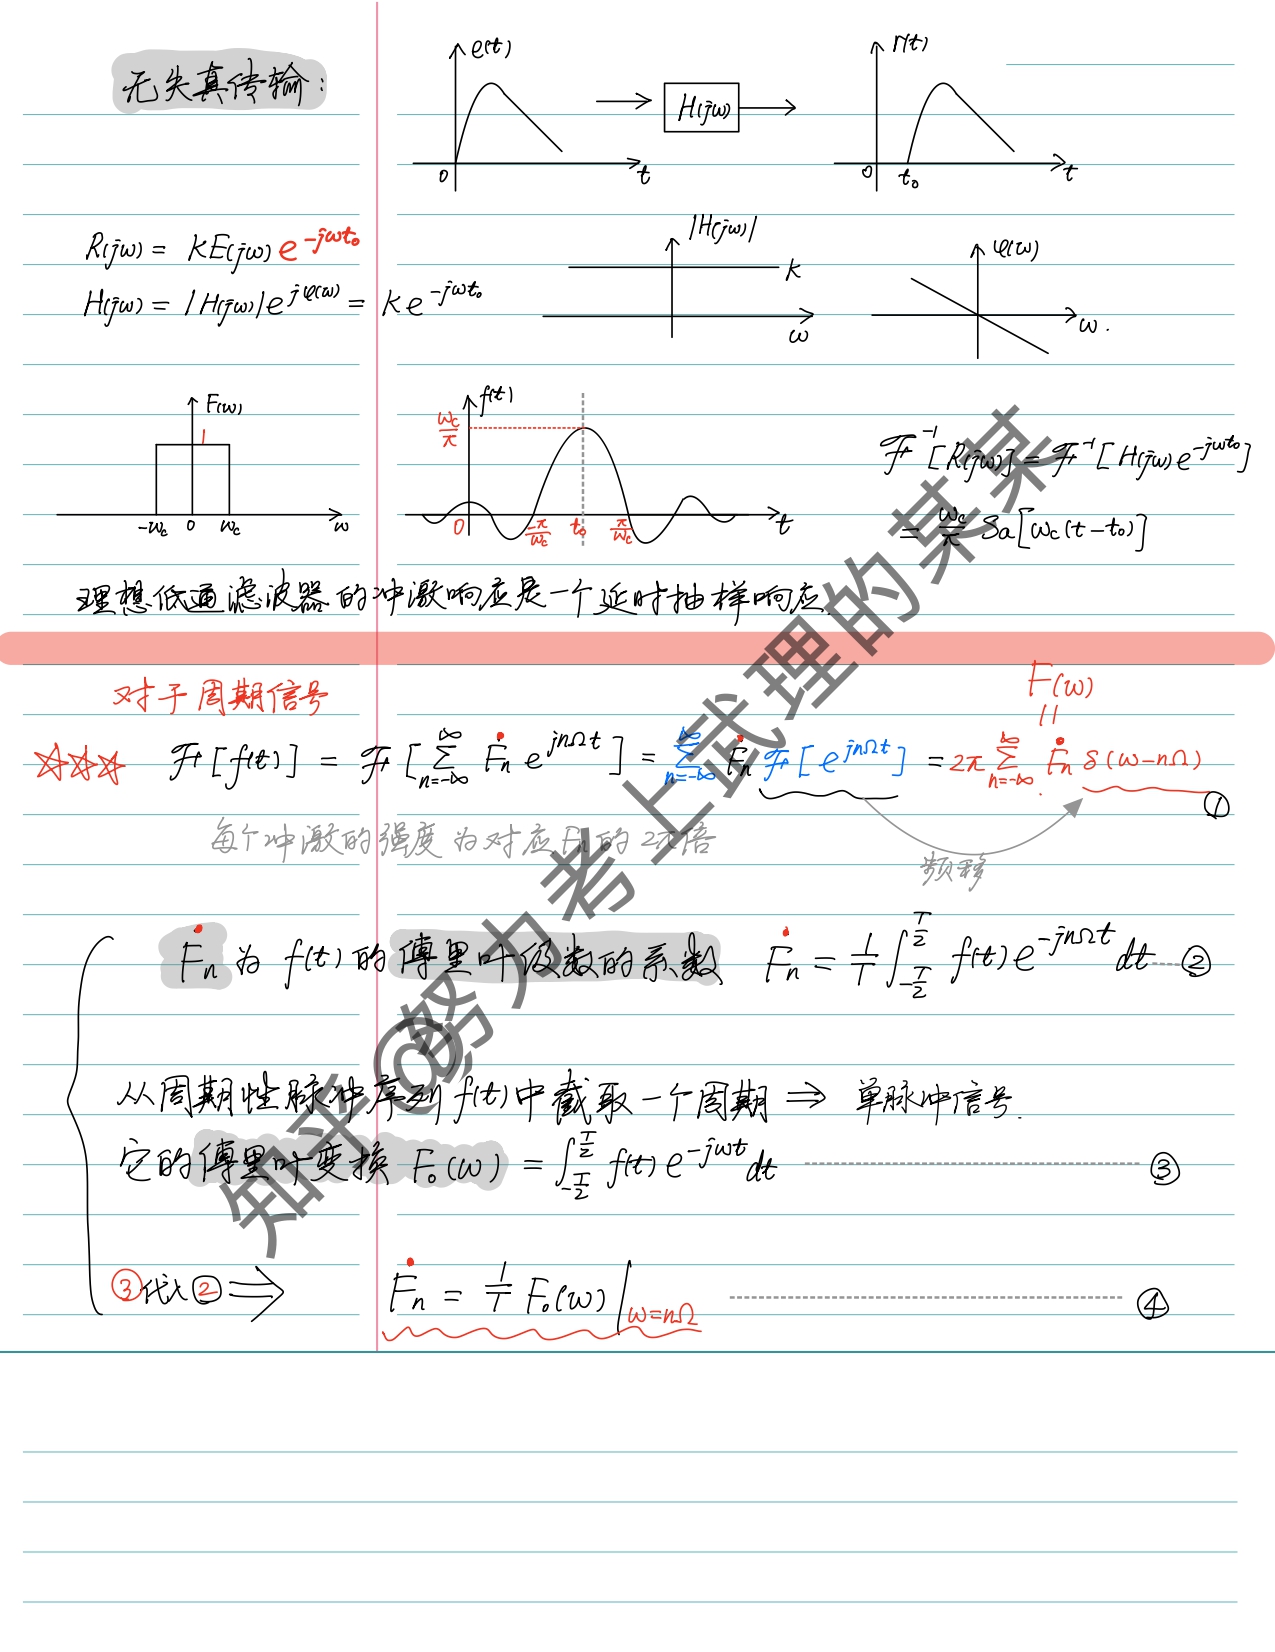 无失真传输:
e(t)
0
t
H(jω)
r(t)
0
t₀
t
R(jω) = KE(jω) e^{-jωt₀}
H(jω) = |H(jω)|e^{jφ(ω)} = Ke^{-jωt₀}
|H(jω)|
K
ω
φ(ω)
ω.
F(ω)
1
-ωc 0 ωc
ω
f(t)
ωc/π
0
-π/ωc
t₀
π/ωc
t
ℱ⁻¹[R(jω)] = ℱ⁻¹[H(jω)e^{-jωt₀}]
= ωc/π Sa[ωc(t-t₀)]
理想低通滤波器的冲激响应是一个延时抽样响应.
对于周期信号
F(ω)
||
☆☆☆ ℱ[f(t)] = ℱ[∑_{n=-∞}^{∞} Ḟn e^{jnΩt}] = ∑_{n=-∞}^{∞} Ḟn ℱ[e^{jnΩt}] = 2π∑_{n=-∞}^{∞} Ḟn δ(ω-nΩ)
①
每个冲激的强度为对应Fn的2π倍
频移
Ḟn 为 f(t) 的傅里叶级数的系数 Ḟn = 1/T ∫_{-T/2}^{T/2} f(t)e^{-jnΩt}dt ②
从周期性脉冲序列f(t)中截取一个周期 ⇒ 单脉冲信号.
它的傅里叶变换 F₀(ω) = ∫_{-T/2}^{T/2} f(t)e^{-jωt}dt ③
③代入② ⇒ Ḟn = 1/T F₀(ω)|_{ω=nΩ} ④
知乎@努力考上武理的某某